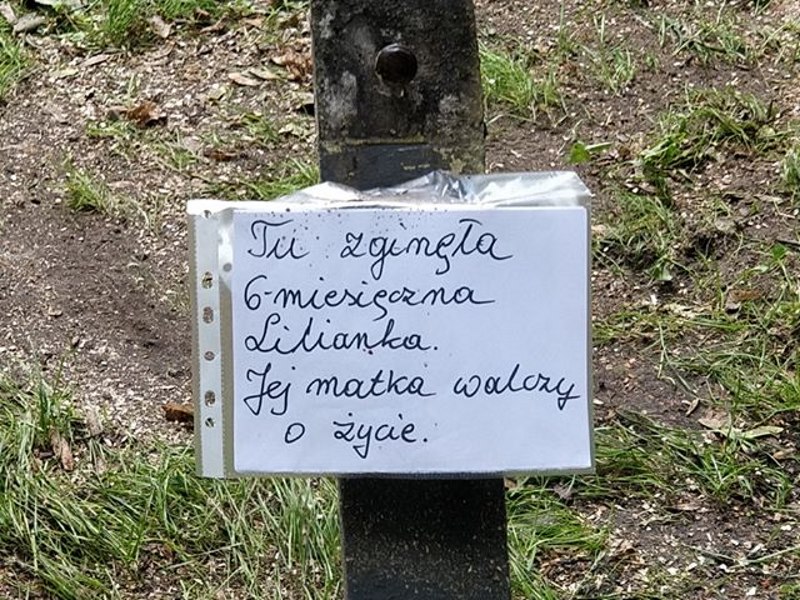 Tu zginęła
6-miesięczna
Lilianka.
Jej matka walczy
o życie.